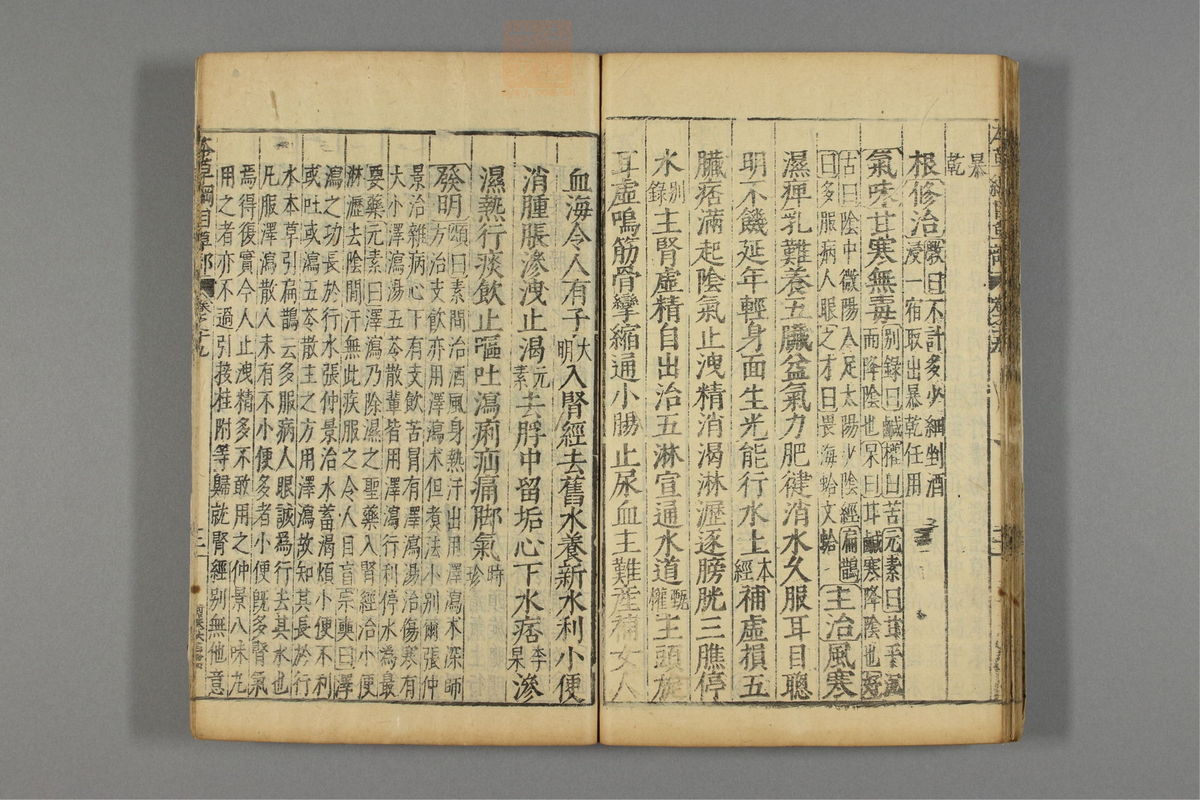 暴
乾
根修治斆曰不計多少細剉酒
浸一宿取出暴乾任用
氣味甘寒無毒別錄曰鹹權曰苦元素曰甘平沉
而降陰也杲曰甘鹹寒降陰也好
古曰陰中微陽入足太陽少陰經扁鵲
曰多服病人眼之才曰畏海蛤文蛤主治風寒
濕痺乳難養五臟益氣力肥健消水久服耳目聰
明不饑延年輕身面生光能行水上本經補虛損五
臟痞滿起陰氣止洩精消渴淋瀝逐膀胱三膲停
水別錄主腎虛精自出治五淋宣通水道甄權主頭旋
耳虛鳴筋骨攣縮通小腸止尿血主難產補女人
血海令人有子大明入腎經去舊水養新水利小便
消腫脹滲洩止渴元素去脬中留垢心下水痞李杲滲
濕熱行痰飲止嘔吐瀉痢疝痛脚氣時珍
發明頌曰素問治酒風身熱汗出用澤瀉朮深師
方治支飲亦用澤瀉朮但煮法小別爾張仲
景治雜病心下有支飲苦冒有澤瀉湯治傷寒有
大小澤瀉湯五苓散輩皆用澤瀉行利停水為最
要藥元素曰澤瀉乃除濕之聖藥入腎經治小便
淋瀝去陰間汗無此疾服之令人目盲宗奭曰澤
瀉之功長於行水張仲景治水蓄渴煩小便不利
或吐或瀉五苓散主之方用澤瀉故知其長於行
水本草引扁鵲云多服病人眼誠為行去其水也
凡服澤瀉散人未有不小便多者小便旣多腎氣
焉得復實今人止洩精多不敢用之仲景八味丸
用之者亦不過引接桂附等歸就腎經別無他意
本草綱目草部